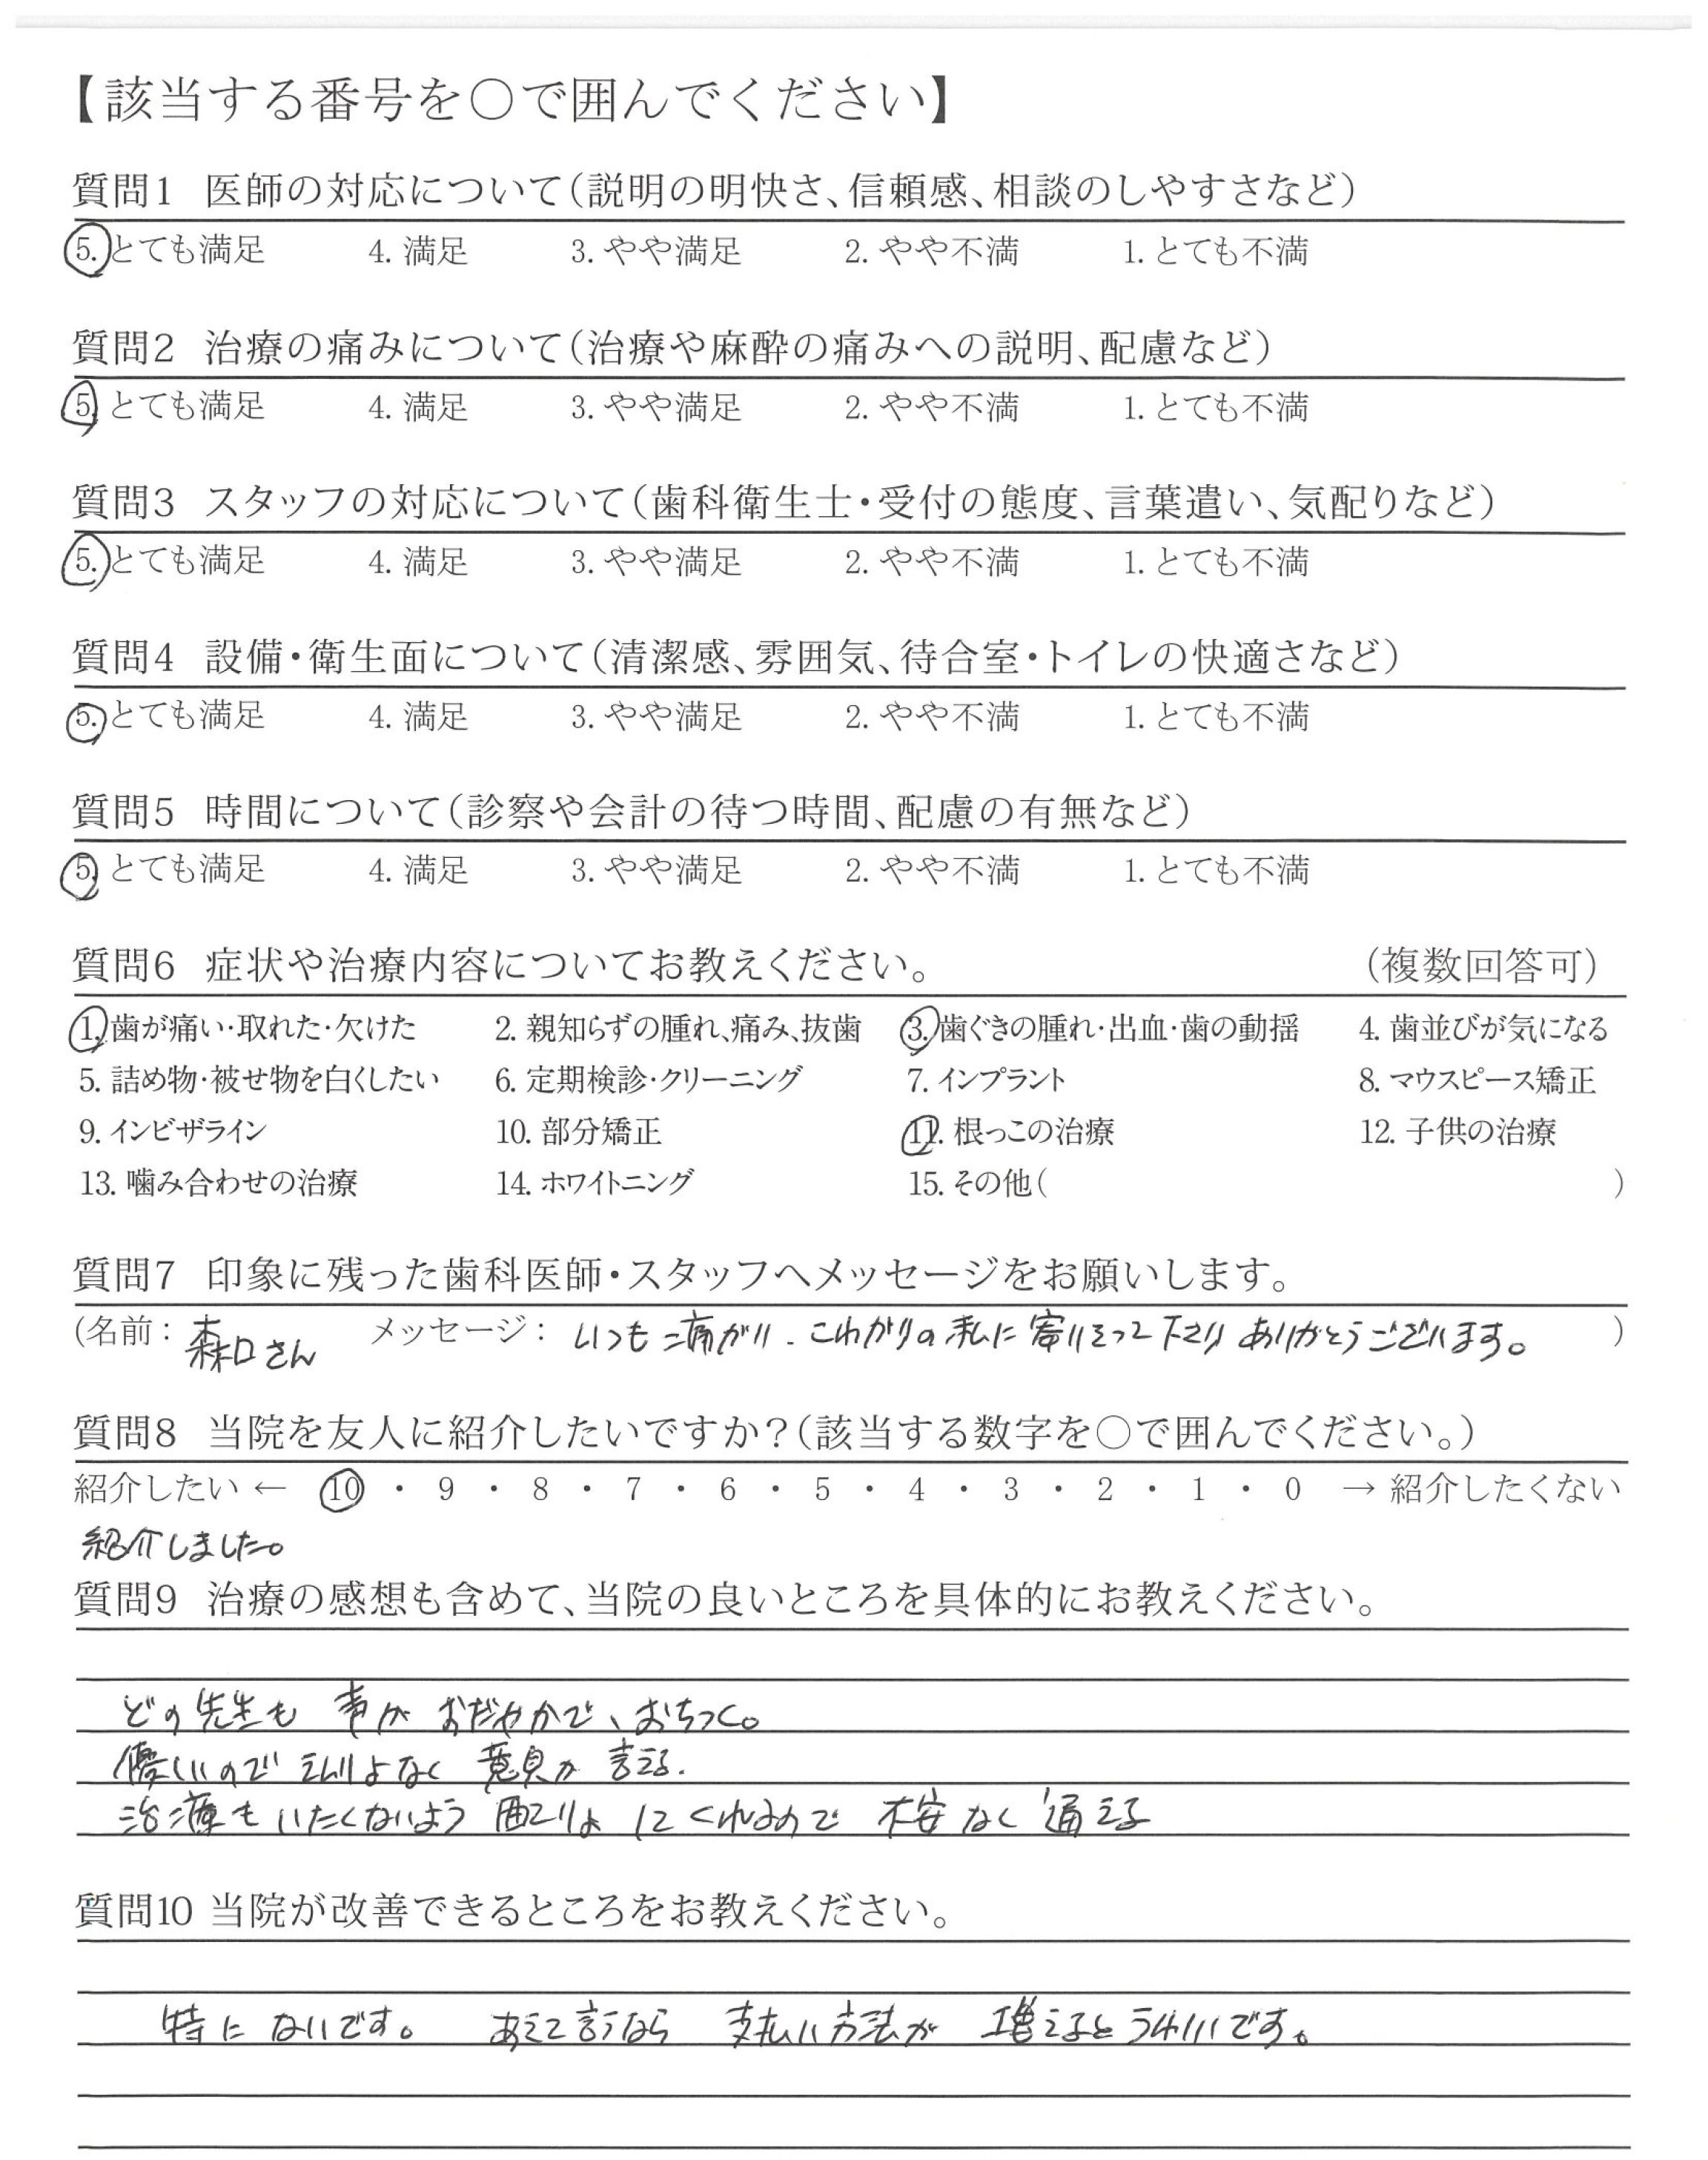 【該当する番号を○で囲んでください】
質問1 医師の対応について(説明の明快さ、信頼感、相談のしやすさなど)
5. とても満足 4. 満足 3. やや満足 2. やや不満 1. とても不満
質問2 治療の痛みについて(治療や麻酔の痛みへの説明、配慮など)
5. とても満足 4. 満足 3. やや満足 2. やや不満 1. とても不満
質問3 スタッフの対応について(歯科衛生士・受付の態度、言葉遣い、気配りなど)
5. とても満足 4. 満足 3. やや満足 2. やや不満 1. とても不満
質問4 設備・衛生面について(清潔感、雰囲気、待合室・トイレの快適さなど)
5. とても満足 4. 満足 3. やや満足 2. やや不満 1. とても不満
質問5 時間について(診察や会計の待つ時間、配慮の有無など)
5. とても満足 4. 満足 3. やや満足 2. やや不満 1. とても不満
質問6 症状や治療内容についてお教えください。 (複数回答可)
1. 歯が痛い・取れた・欠けた 2. 親知らずの腫れ、痛み、抜歯 3. 歯ぐきの腫れ・出血・歯の動揺 4. 歯並びが気になる
5. 詰め物・被せ物を白くしたい 6. 定期検診・クリーニング 7. インプラント 8. マウスピース矯正
9. インビザライン 10. 部分矯正 11. 根っこの治療 12. 子供の治療
13. 噛み合わせの治療 14. ホワイトニング 15. その他( )
質問7 印象に残った歯科医師・スタッフへメッセージをお願いします。
(名前: 森口さん メッセージ: いつも痛がり、こわがりの私に寄りそって下さり ありがとうございます。 )
質問8 当院を友人に紹介したいですか?(該当する数字を○で囲んでください。)
紹介したい ← 10 ・ 9 ・ 8 ・ 7 ・ 6 ・ 5 ・ 4 ・ 3 ・ 2 ・ 1 ・ 0 → 紹介したくない
紹介しました。
質問9 治療の感想も含めて、当院の良いところを具体的にお教えください。
どの先生も 声が おだやかで、おちつく。
優しいので えんりょなく 意見が 言える.
治療も いたくないよう 配りょ してくれるので 不安なく 通える
質問10 当院が改善できるところをお教えください。
特に ないです。 あえて言うなら 支払い方法が 増えるとうれしいです。